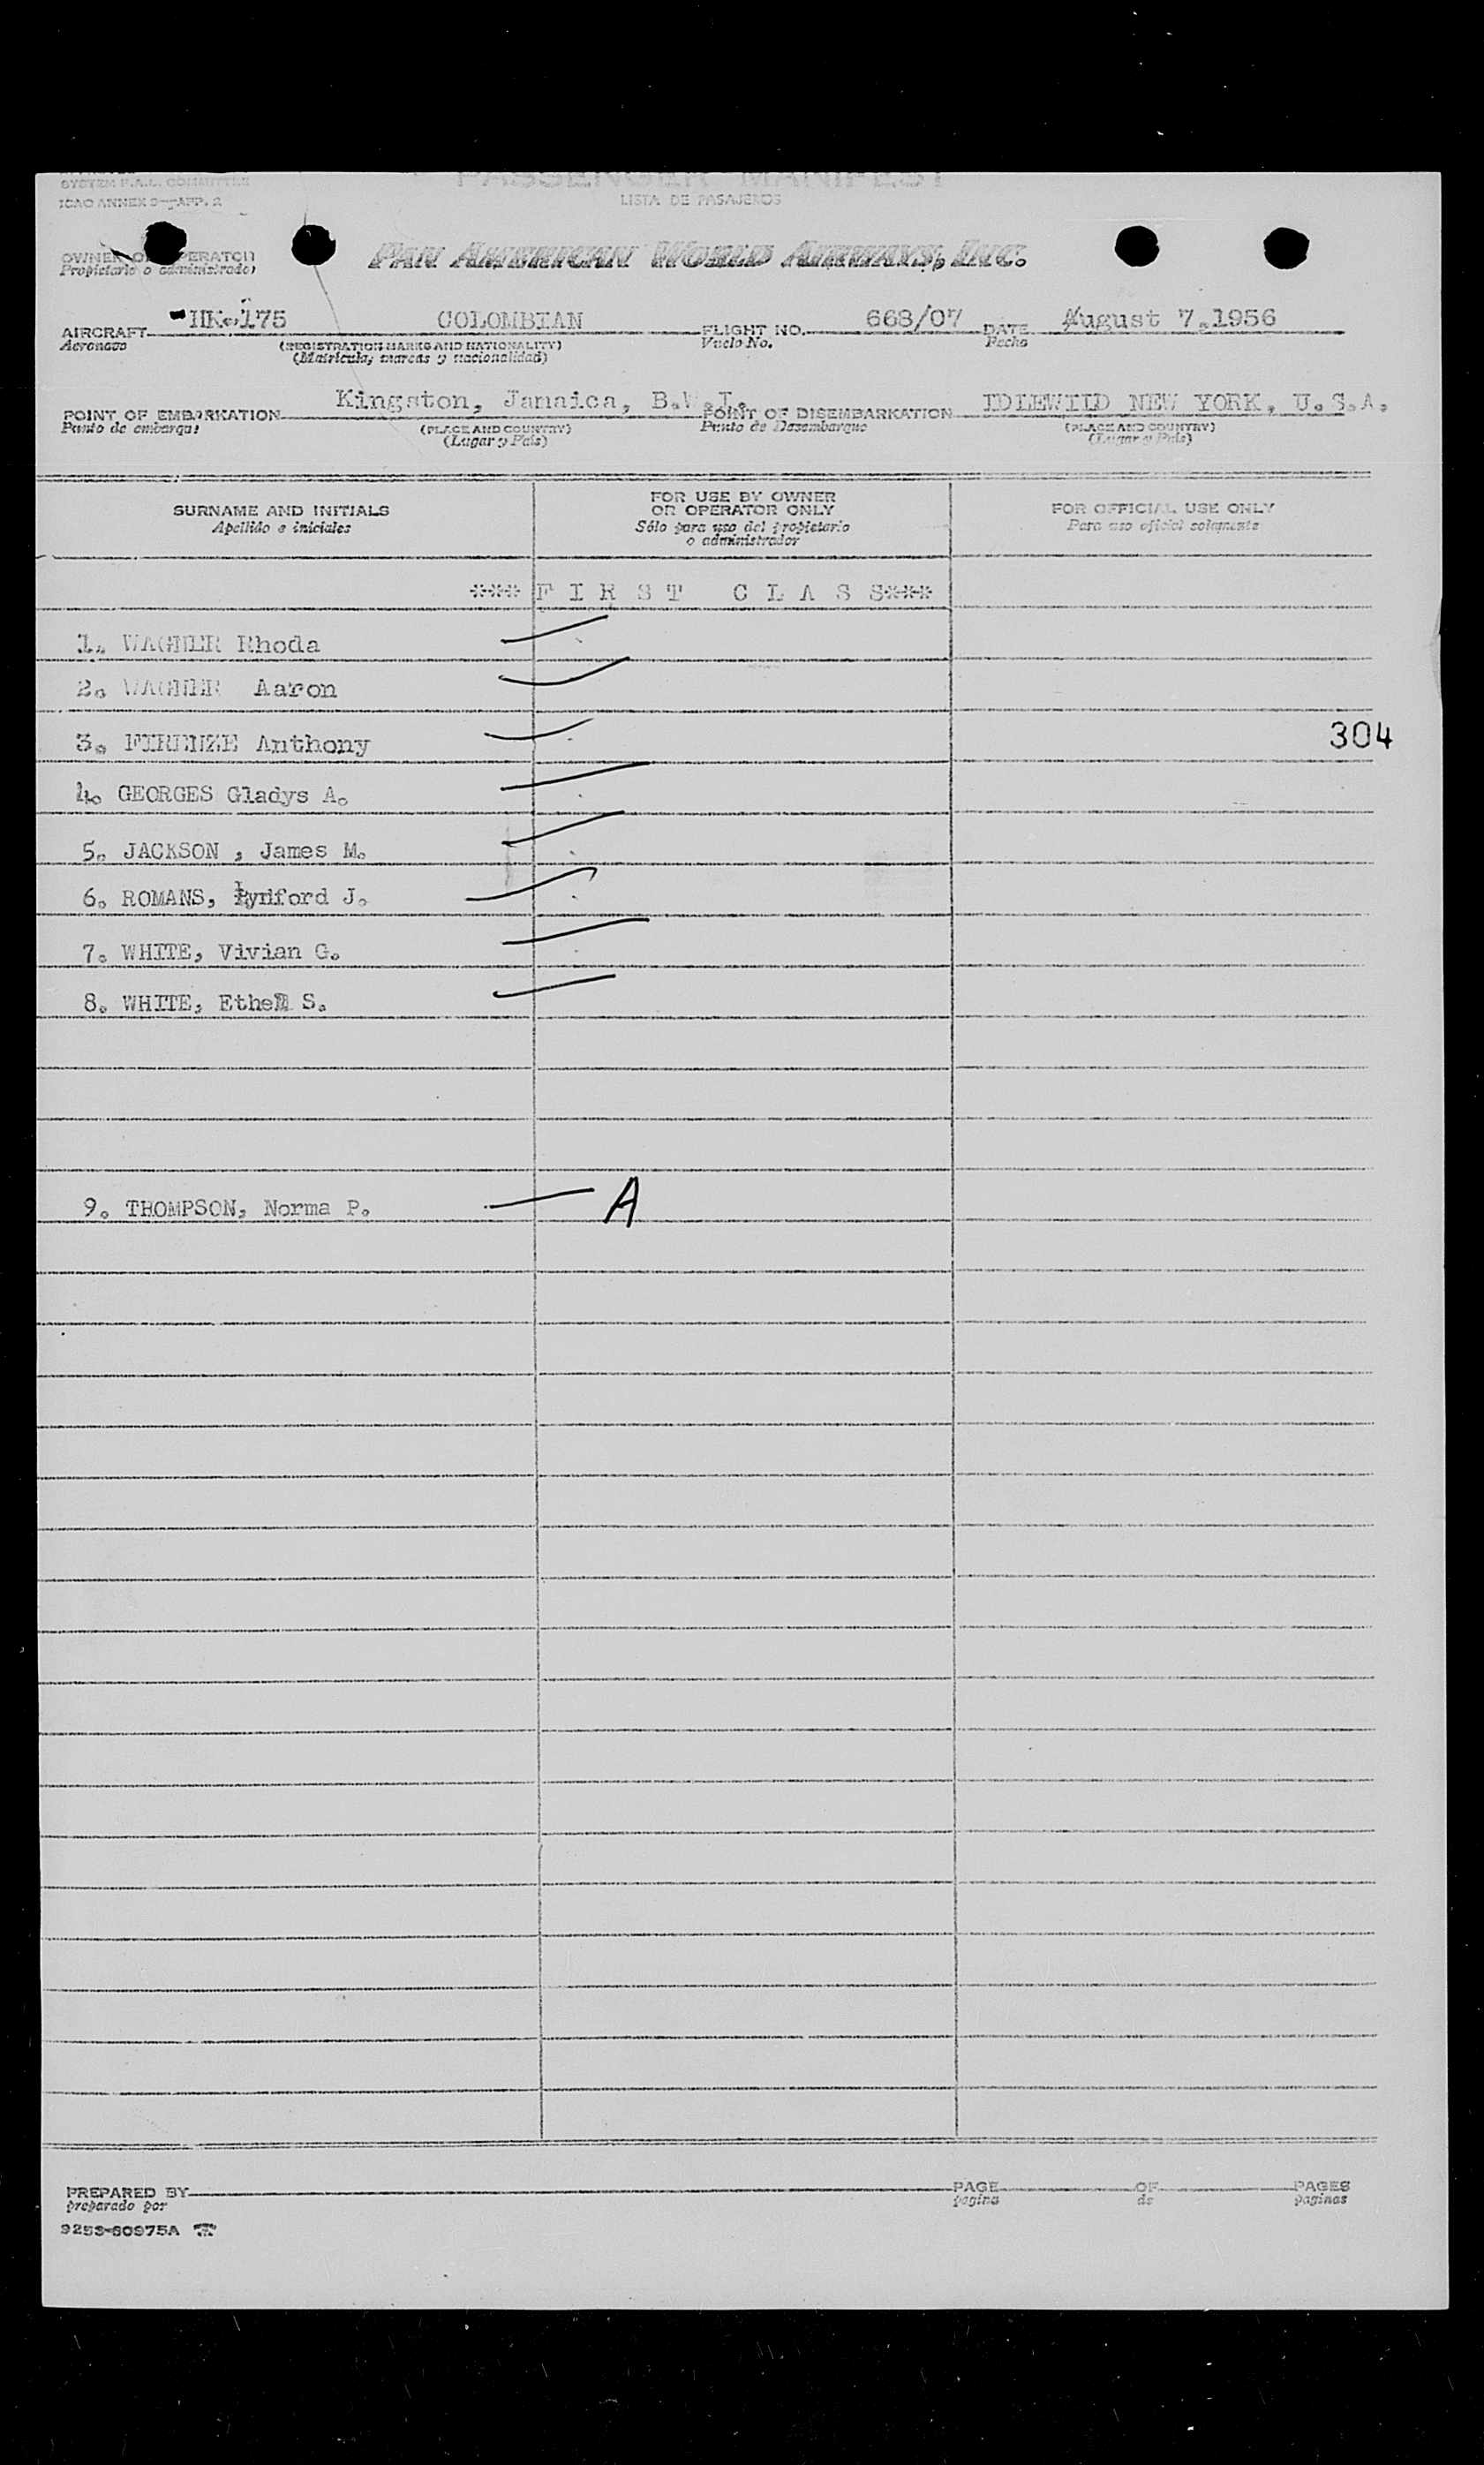 SYSTEM F.A.L. COMMITTEE
PASSENGER MANIFEST
ICAO ANNEX 9—APP. 2
LISTA DE PASAJEROS
OWNER OR OPERATOR
Propietario o administrador
PAN AMERICAN WORLD AIRWAYS, INC.
AIRCRAFT HK-175 COLOMBIAN FLIGHT NO. 668/07 DATE August 7, 1956
Aeronave (REGISTRATION MARKS AND NATIONALITY) Vuelo No. Fecha
(Matricula, marcas y nacionalidad)
POINT OF EMBARKATION Kingston, Jamaica, B.W.I. POINT OF DISEMBARKATION IDLEWILD NEW YORK, U.S.A.
Punto de embarque (PLACE AND COUNTRY) Punto de Desembarque (PLACE AND COUNTRY)
(Lugar y País) (Lugar y País)
SURNAME AND INITIALS FOR USE BY OWNER OR OPERATOR ONLY FOR OFFICIAL USE ONLY
Apellido e iniciales Sólo para uso del propietario o administrador Para uso oficial solamente
*** F I R S T C L A S S***
1. WAGNER Rhoda
2. WAGNER Aaron
3. FIRENZE Anthony 304
4. GEORGES Gladys A.
5. JACKSON , James M.
6. ROMANS, Lynford J.
7. WHITE, Vivian G.
8. WHITE, Ethel S.
9. THOMPSON, Norma P. A
PREPARED BY PAGE OF PAGES
preparado por pagina de paginas
9253-60975A